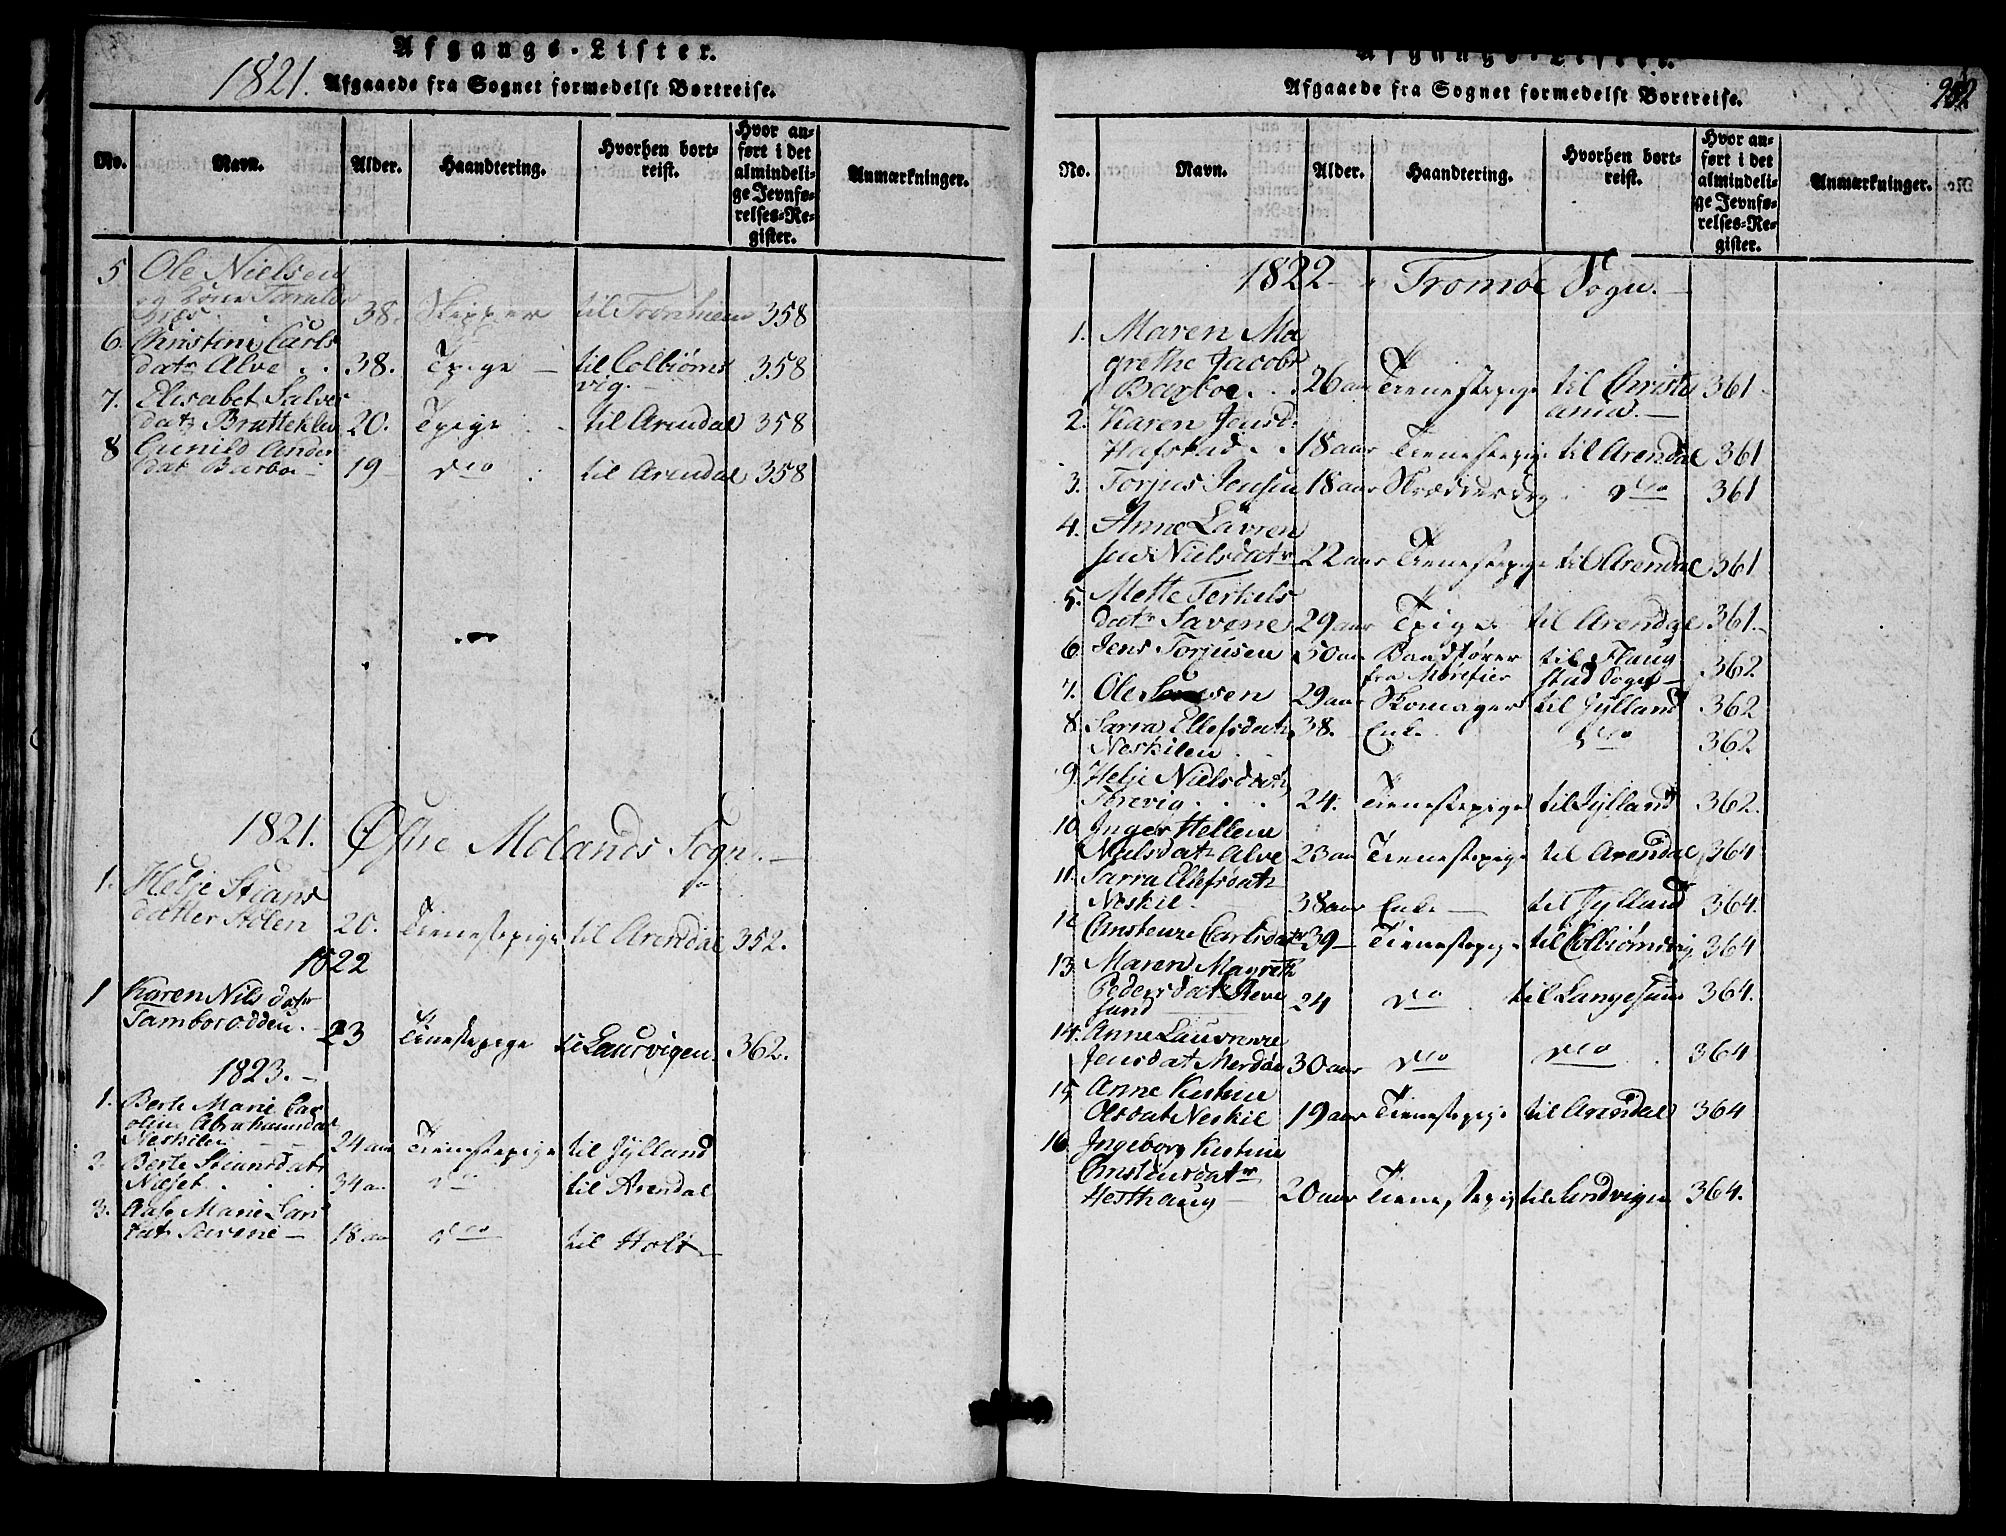 Afgangs-Lister.
1821. Afgaaede fra Sognet formedelst Bortreise.
No. Navn. Alder. Haandtering. Hvorhen bortreist. Hvor anført i det almindelige Jevnførelses-Register. Anmærkninger.
5 Ole Nielsen
og Kone
38. Skipper til Tronhiem 358
6. Christine Carls
datr Alve . . 38. Tpige – til Colbiørns 358
vig. –
7. Elisabet Salves
datr Bratteklev 20. Tpige . til Arendal 358
8 Gunild Anders
dat Barboe – 19 – dto . til Arendal 358
1821. Østre Molands Sogn. –
1. Helje Stians
datter Stölen 20. Tienestepige til Arendal 352.
1822
1 Karen Nils datr
Tamborodden. – 23 Tienestepige til Laurvigen 362.
1823. –
1. Berte Marie Car
oline Abrahamsdat
Neskilen – – 24 aar Tienestepige til Jylland
2. Berte Stiansdatr
Næset . . . 34 a. dto til Arendal
3. Aase Marie Lars
dat Savene – 18 aar dto til Holt –
Afgangs-Lister.
Afgaaede fra Sognet formedelst Bortreise.
252
No. Navn. Alder. Haandtering. Hvorhen bortreist. Hvor anført i det almindelige Jevnførelses-Register. Anmærkninger.
1822 – Tromøe Sogn. –
1. Maren Ma
grethe Jacobs
Barboe. . . 26 aar Tienestepige til Christi 361 –
ania. –
2. Karen Jensd.
Hafstad . . 18 aar Tienestepige til Arendal 361
3. Torjus Jensen 18 aar Skrædderdrg dto 361
4. Anne Lavren
sen Nielsdatr 22 aar Tienestepige til Arendal 361
5. Mette Terkels
datr Savene 29 aar Tpige til Arendal 361. –
6 Jens Torjusen 50 aar Baadsfører til Flaug 362
fra Mærefier stad Sogn –
7. Ole 29 aar Skomager til Jylland 362
8. Sarra Ellefsdatr 38. Enke dto 362
Neskilen . .
9. Helje Nielsdatr
. . . 24. Tienestepige til Jylland 362.
10. Inger Hellene
Nielsdatr Alve 23 aar Tienestepige til Arendal 364
11. Sarra Ellefsdatr
Neskil. – 38 aar Enke – til Jylland 364.
12 Carlsdatr 39 – Tienestepige til Colbiørnsvig 364
13. Maren Magreth
Pedersdatr Reve
sund 24 dto til Langesund 364.
14. Anne Laurense
Jensdat Merdøe 30 aar dto dto . 364
15. Anne Kistine
Olsdat Neskil 19 aar Tienestepige til Arendal 364
16. Ingeborg Kistine
datr
Hesthaug – 20 aar Tienestepige til Sandvigen 364.